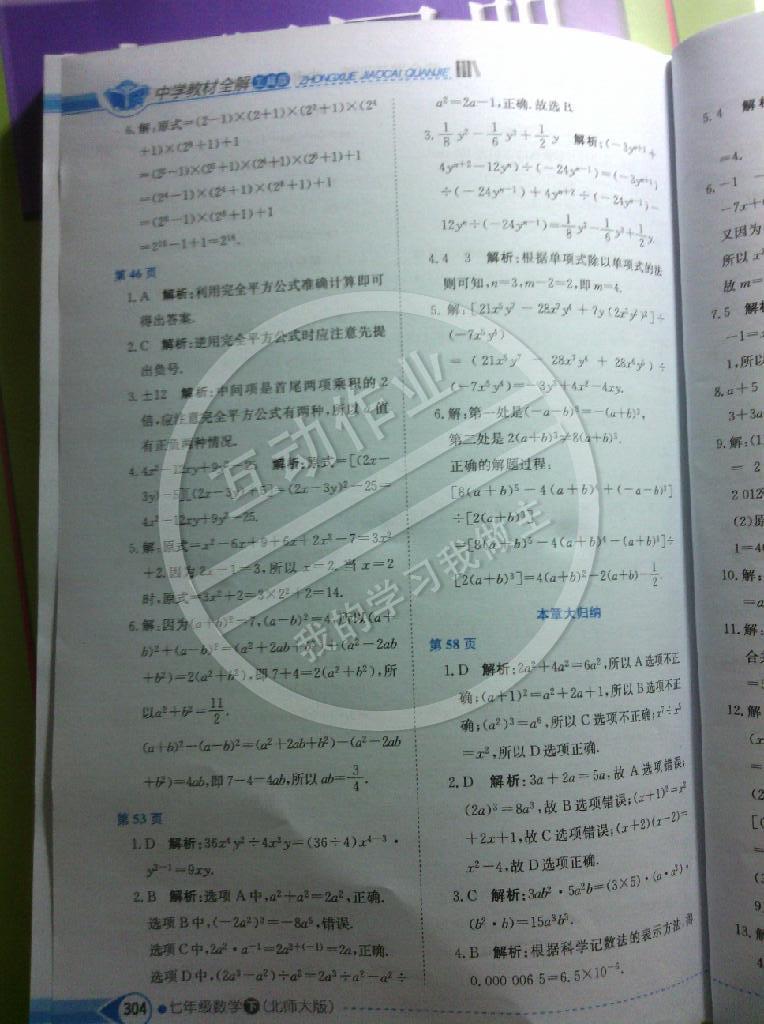 中学教材全解 工具版 ZHONGXUE JIAOCAI QUANJIE
6.解:原式=(2-1)×(2+1)×(2²+1)×(2⁴
+1)×(2⁸+1)+1
=(2²-1)×(2²+1)×(2⁴+1)×(2⁸+1)+1
=(2⁴-1)×(2⁴+1)×(2⁸+1)+1
=(2⁸-1)×(2⁸+1)+1
=2¹⁶-1+1=2¹⁶.
第46页
1.A 解析:利用完全平方公式准确计算即可
得出答案.
2.C 解析:逆用完全平方公式时应注意先提
出负号.
3.±12 解析:中间项是首尾两项乘积的2
倍,应注意完全平方公式有两种,所以 值
有正负两种情况.
4.4x²-12xy+9y²-25 解析:原式=[(2x-
3y)-5][(2x-3y)+5]=(2x-3y)²-25=
4x²-12xy+9y²-25.
5.解:原式=x²-6x+9+6x+2x²-7=3x²
+2.因为2x-1=3,所以x=2.当x=2
时,原式=3x²+2=3×2²+2=14.
6.解:因为(a+b)²=7,(a-b)²=4,所以(a+
b)²+(a-b)²=(a²+2ab+b²)+(a²-2ab
+b²)=2(a²+b²),即7+4=2(a²+b²),所
以a²+b²=11/2.
(a+b)²-(a-b)²=(a²+2ab+b²)-(a²-2ab
+b²)=4ab,即7-4=4ab,所以ab=3/4.
第53页
1.D 解析:36x⁴y²÷4x³y=(36÷4)x⁴⁻³·
y²⁻¹=9xy.
2.B 解析:选项A中,a²+a²=2a²,正确.
选项B中,(-2a²)³=-8a⁵,错误.
选项C中,2a²·a⁻¹=2a²⁺⁽⁻¹⁾=2a,正确.
选项D中,(2a³-a²)÷a²=2a³÷a²-a²÷
304 七年级数学下(北师大版)
a²=2a-1,正确.故选B.
3.1/8y²-1/6y³+1/2y 解析:(-3yⁿ⁺¹+
4yⁿ⁺²-12yⁿ)÷(-24yⁿ⁻¹)=(-3yⁿ⁺¹)
÷(-24yⁿ⁻¹)+4yⁿ⁺²÷(-24yⁿ⁻¹)-
12yⁿ÷(-24yⁿ⁻¹)=1/8y²-1/6y³+1/2y.
4.4 3 解析:根据单项式除以单项式的法
则可知,n=3,m-2=2,即m=4.
5.解:[21x⁵y⁷-28x⁷y⁶+7y(2x³y²)²]÷
(-7x⁵y⁶)
=(21x⁵y⁷-28x⁷y⁶+28x⁶y⁵)÷
(-7x⁵y⁶)=-3y+4x²-4xy.
6.解:第一处是(-a-b)³=-(a+b)³,
第二处是2(a+b)³≠8(a+b)³.
正确的解题过程:
[8(a+b)⁵-4(a+b)⁴+(-a-b)³]
÷[2(a+b)³]
=[8(a+b)⁵-4(a+b)⁴-(a+b)³]÷
[2(a+b)³]=4(a+b)²-2(a+b)-1/2.
本章大归纳
第58页
1.D 解析:2a²+4a²=6a²,所以A选项不正
确;(a+1)²=a²+2a+1,所以B选项不正
确;(a²)³=a⁶,所以C选项不正确;x⁷÷x⁵
=x²,所以D选项正确.
2.D 解析:3a+2a=5a,故A选项错误;
(2a)³=8a³,故B选项错误;(x+1)²=x²
+2x+1,故C选项错误;(x+2)(x-2)=
x²-4,故D选项正确.
3.C 解析:3ab²·5a²b=(3×5)·(a·a²)·
(b²·b)=15a³b³.
4.B 解析:根据科学记数法的表示方法,得
0.000 006 5=6.5×10⁻⁶.
5.4 解析
=4.
6.-1
-7x+
又因为
所以x
故m=
7.5 解析
-1=
1,所以
8.a+5
3+3a
9.解:(1
=2
2 012
(2)原
1=4
10.解:
=a
11.解:
合并
=
12.解
(x
=
(2
[(
=
3
9
13.解
4
互动作业
我的学习我做主